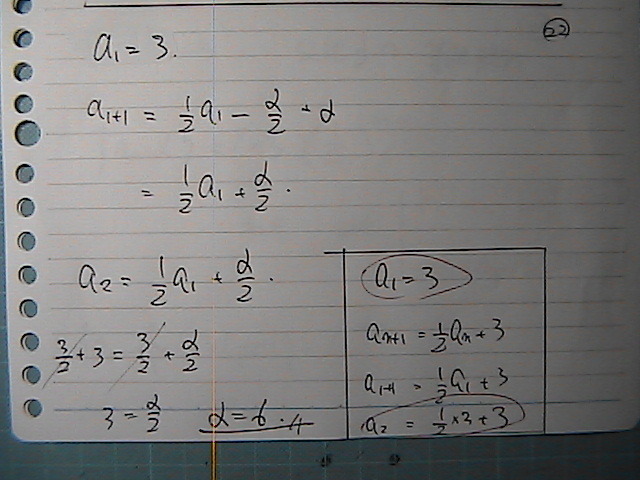 22
a₁ = 3.
a₁₊₁ = 1/2 a₁ - α/2 + α
= 1/2 a₁ + α/2.
a₂ = 1/2 a₁ + α/2.
3/2 + 3 = 3/2 + α/2
3 = α/2 α = 6.
a₁ = 3
aₙ₊₁ = 1/2 aₙ + 3
a₁₊₁ = 1/2 a₁ + 3
a₂ = 1/2 × 3 + 3